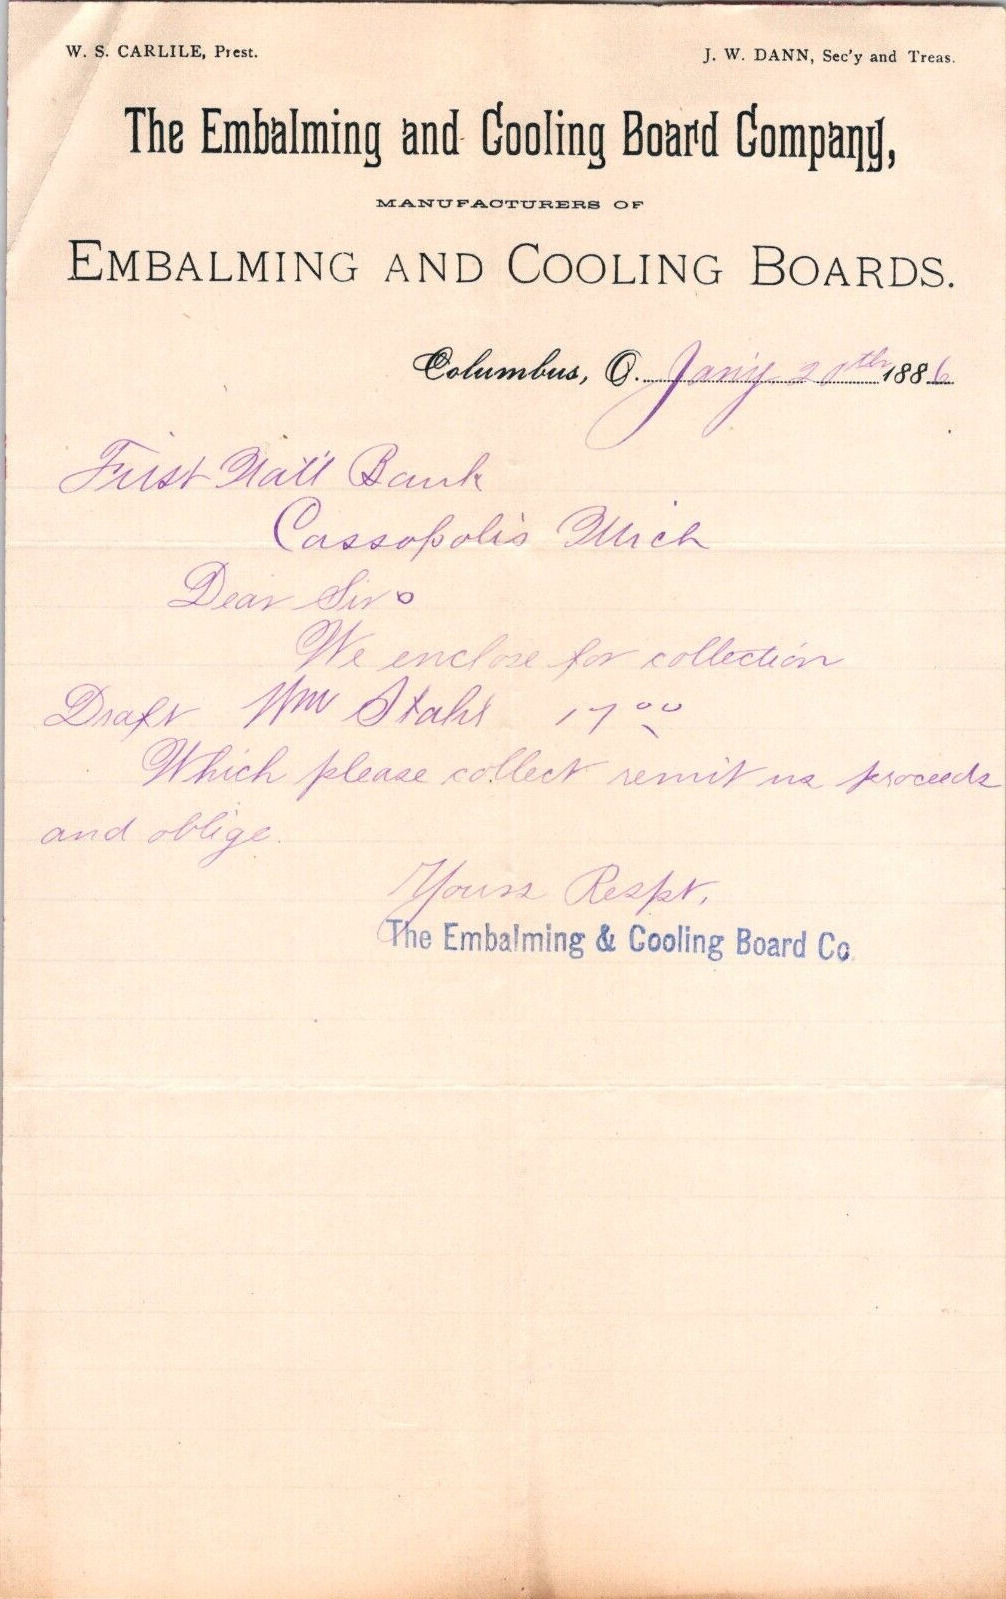 W. S. CARLILE, Prest.
J. W. DANN, Sec'y and Treas.
The Embalming and Cooling Board Company,
MANUFACTURERS OF
EMBALMING AND COOLING BOARDS.
Columbus, O. Jan'y. 20th 1886
First Nat'l Bank
Cassopolis Mich
Dear Sirs
We enclose for collection
Draft Wm Stahl 17 00
Which please collect remit us proceeds
and oblige.
Yours Respt,
The Embalming & Cooling Board Co.